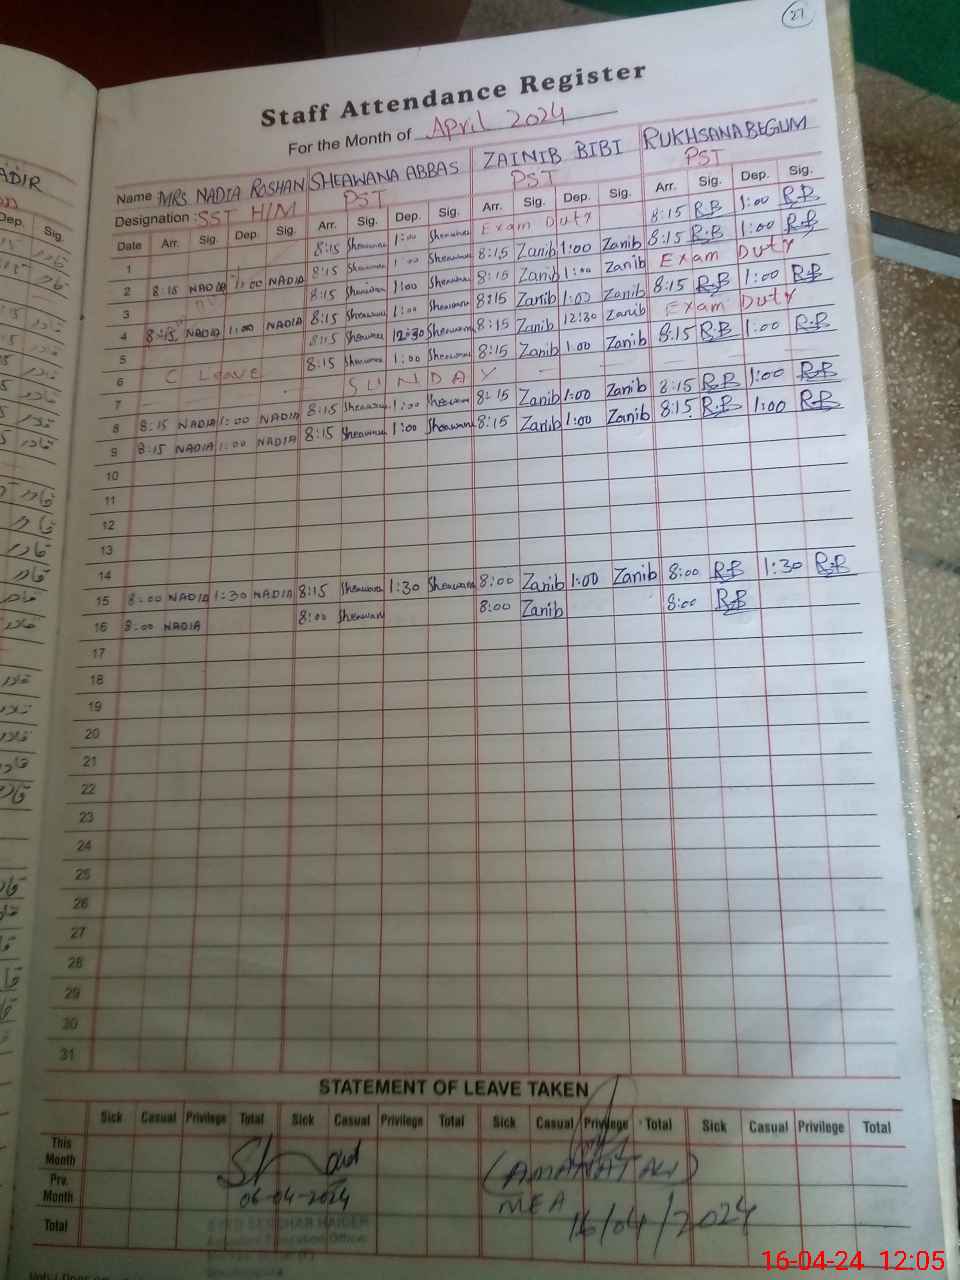 27
Staff Attendance Register
For the Month of April 2024
Name MRS NADIA ROSHAN SHEAWANA ABBAS ZAINIB BIBI RUKHSANA BEGUM
Designation : SST H/M PST PST PST
Date Arr. Sig. Dep. Sig. Arr. Sig. Dep. Sig. Arr. Sig. Dep. Sig. Arr. Sig. Dep. Sig.
1 8:15 1:00 Exam Duty 8:15 R.B 1:00 R.B
2 8:15 NADIA 1:00 NADIA 8:15 1:00 8:15 Zanib 1:00 Zanib 8:15 R.B 1:00 R.B
3 8:15 1:00 8:15 Zanib 1:00 Zanib Exam Duty
4 8:15 NADIA 1:00 NADIA 8:15 1:00 8:15 Zanib 1:00 Zanib 8:15 R.B 1:00 R.B
5 8:15 12:30 8:15 Zanib 12:30 Zanib Exam Duty
6 C Leave 8:15 1:00 8:15 Zanib 1:00 Zanib 8:15 R.B 1:00 R.B
7 SUNDAY
8 8:15 NADIA 1:00 NADIA 8:15 1:00 8:15 Zanib 1:00 Zanib 8:15 R.B 1:00 R.B
9 8:15 NADIA 1:00 NADIA 8:15 1:00 8:15 Zanib 1:00 Zanib 8:15 R.B 1:00 R.B
10
11
12
13
14
15 8:00 NADIA 1:30 NADIA 8:15 Sheawana 1:30 Sheawana 8:00 Zanib 1:00 Zanib 8:00 R.B 1:30 R.B
16 8:00 NADIA 8:00 Sheawan 8:00 Zanib 8:00 R.B
17
18
19
20
21
22
23
24
25
26
27
28
29
30
31
STATEMENT OF LEAVE TAKEN
Sick Casual Privilege Total Sick Casual Privilege Total Sick Casual Privilege Total Sick Casual Privilege Total
This Month
Pre. Month
Total
06-04-2024
(AMANAT ALI)
MEA
16/04/2024
16-04-24 12:05